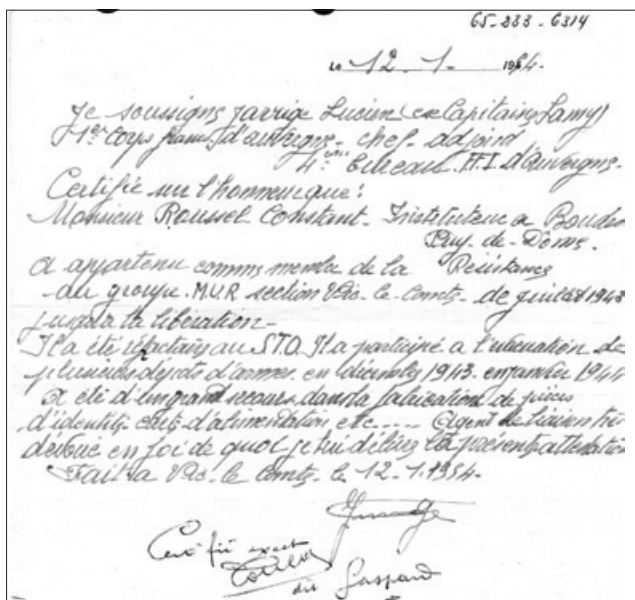 65-233-6314
le 12-1-1954.
Je soussigné Jarrige Lucien (ex Capitaine Lamy)
1er Corps franc d'auvergne - chef adjoint
4ème bureau F.F.I. d'Auvergne.
Certifie sur l'honneur que:
Monsieur Roussel Constant - Instituteur a
Puy-de-Dome.
a appartenu comme membre de la Résistance
au groupe M.U.R section Vic-le-Comte - de juillet 1943
jusqu'a la libération -
Il a été réfractaire au S.T.O. Il a participé a de
plusieurs dépots d'armes en décembre 1943 - en janvier 1944
a été d'un grand secours dans la fabrication de pièces
d'identité carte d'alimentation etc..... Agent de liaison très
dévoué en foi de quoi je lui délivre la présente attestation
Fait a Vic-le-Comte le 12-1-1954.
Certifié exact
dit Gaspard